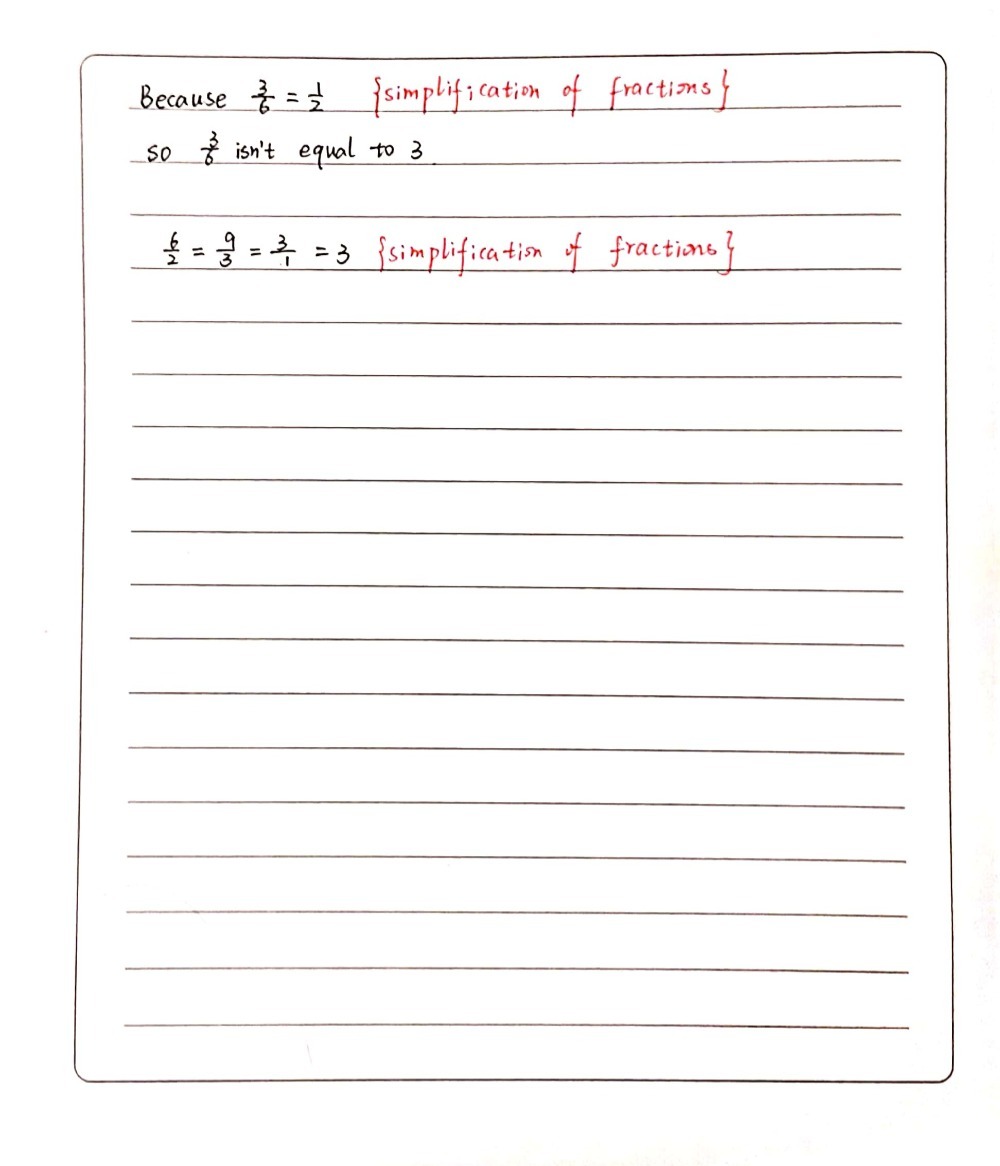 Because 3/6 = 1/2 {simplification of fractions}
so 3/6 isn't equal to 3
6/2 = 9/3 = 3/1 = 3 {simplification of fractions}